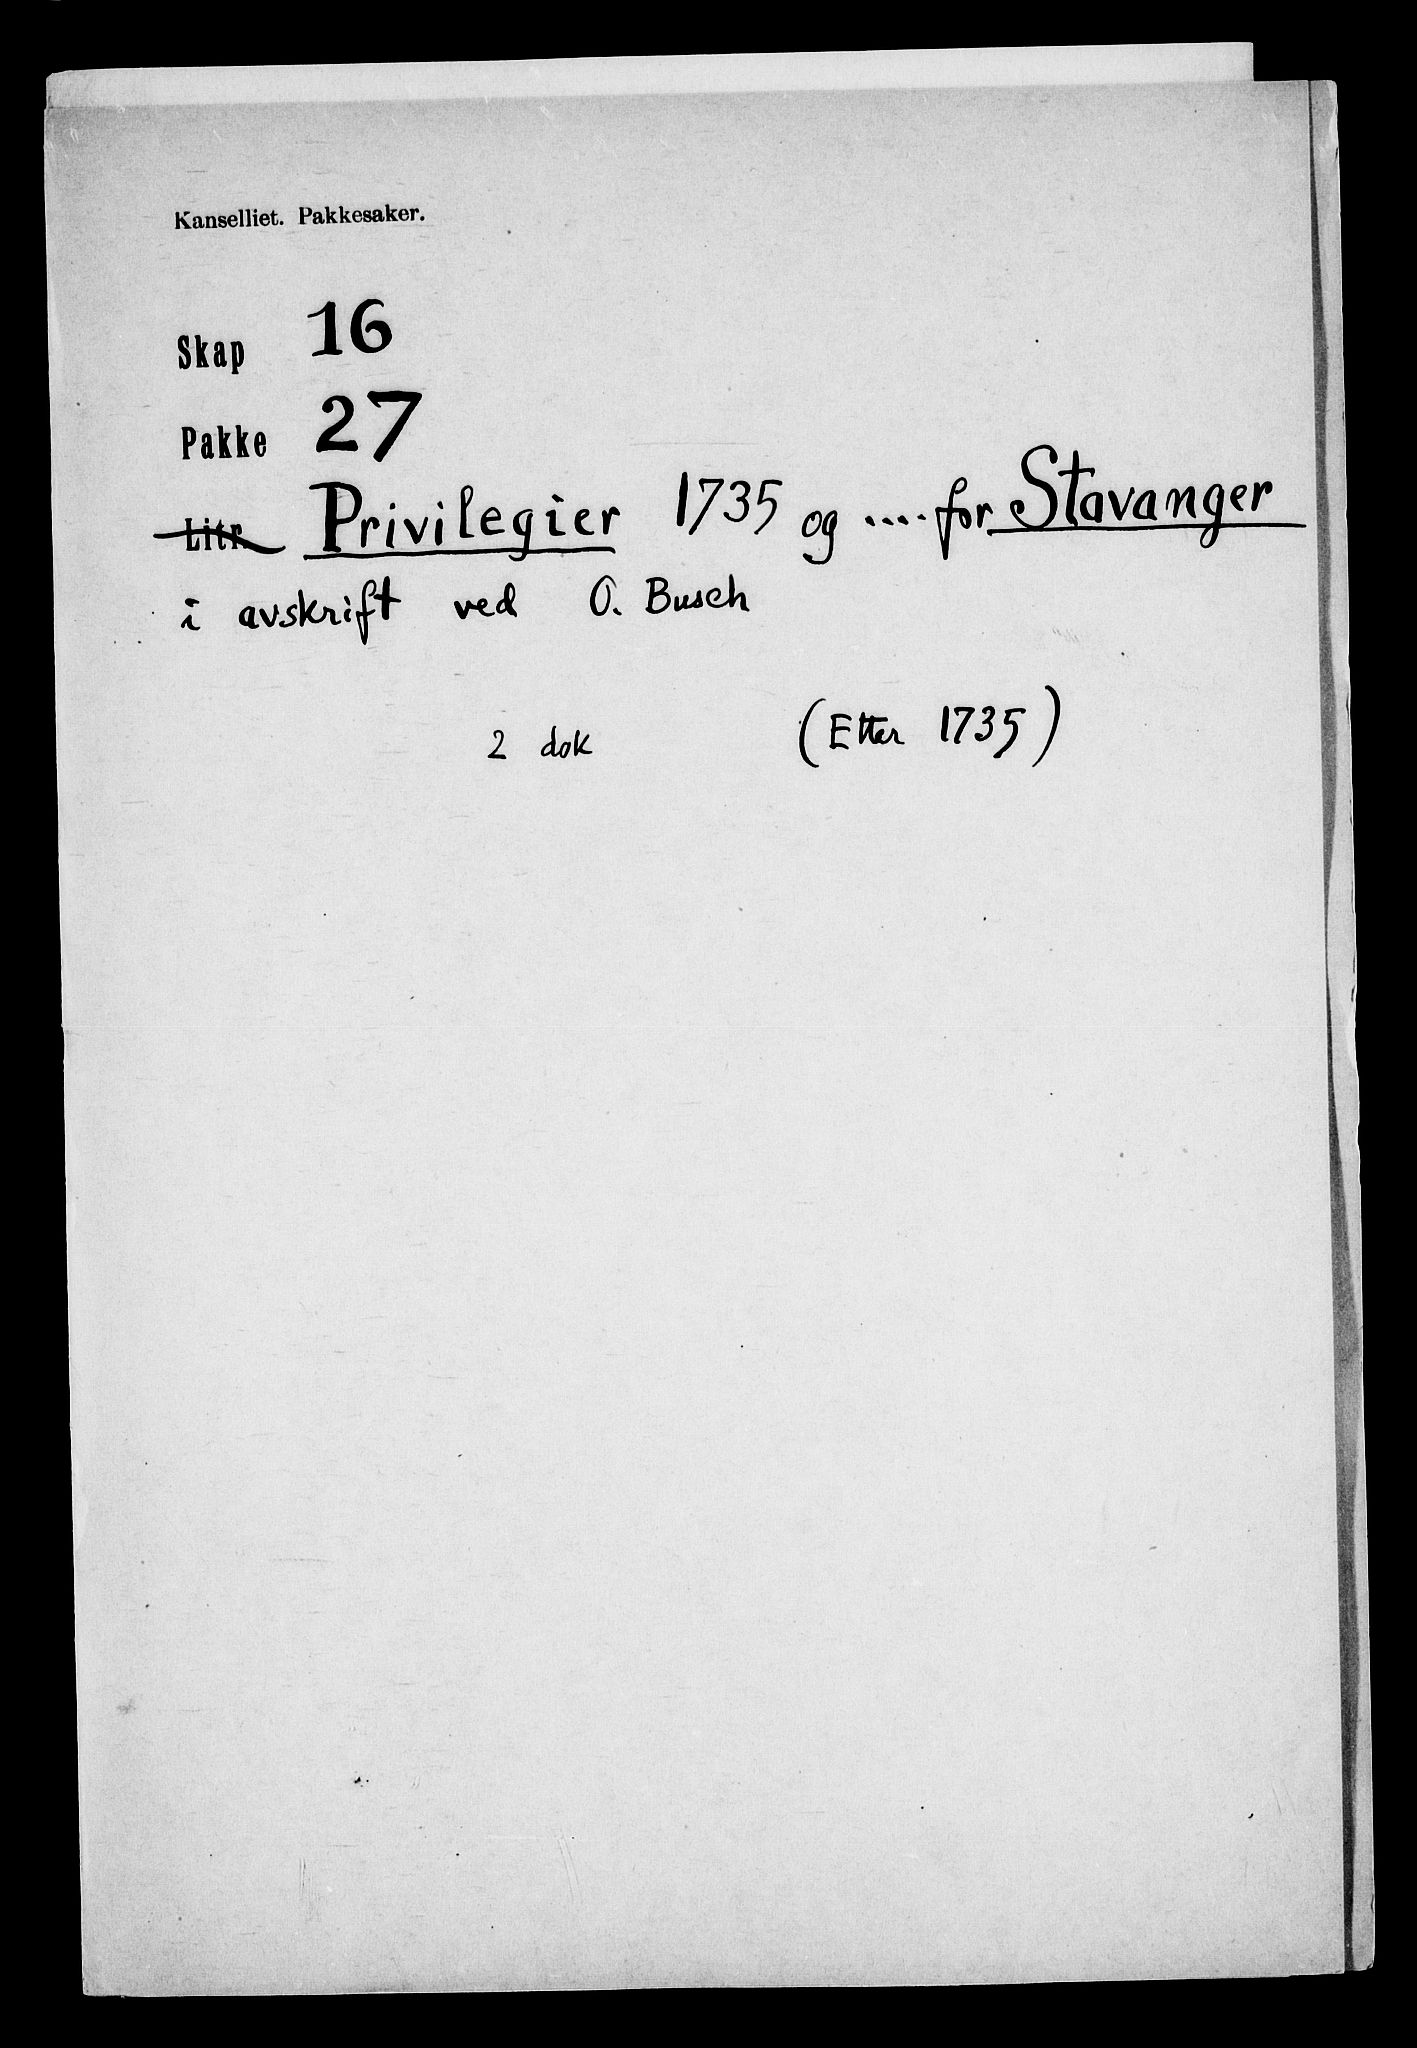 Kanselliet. Pakkesaker.
Skap 16
Pakke 27
Litr. Privilegier 1735 og .... for Stavanger
i avskrift ved O. Busch
2 dok (Etter 1735)